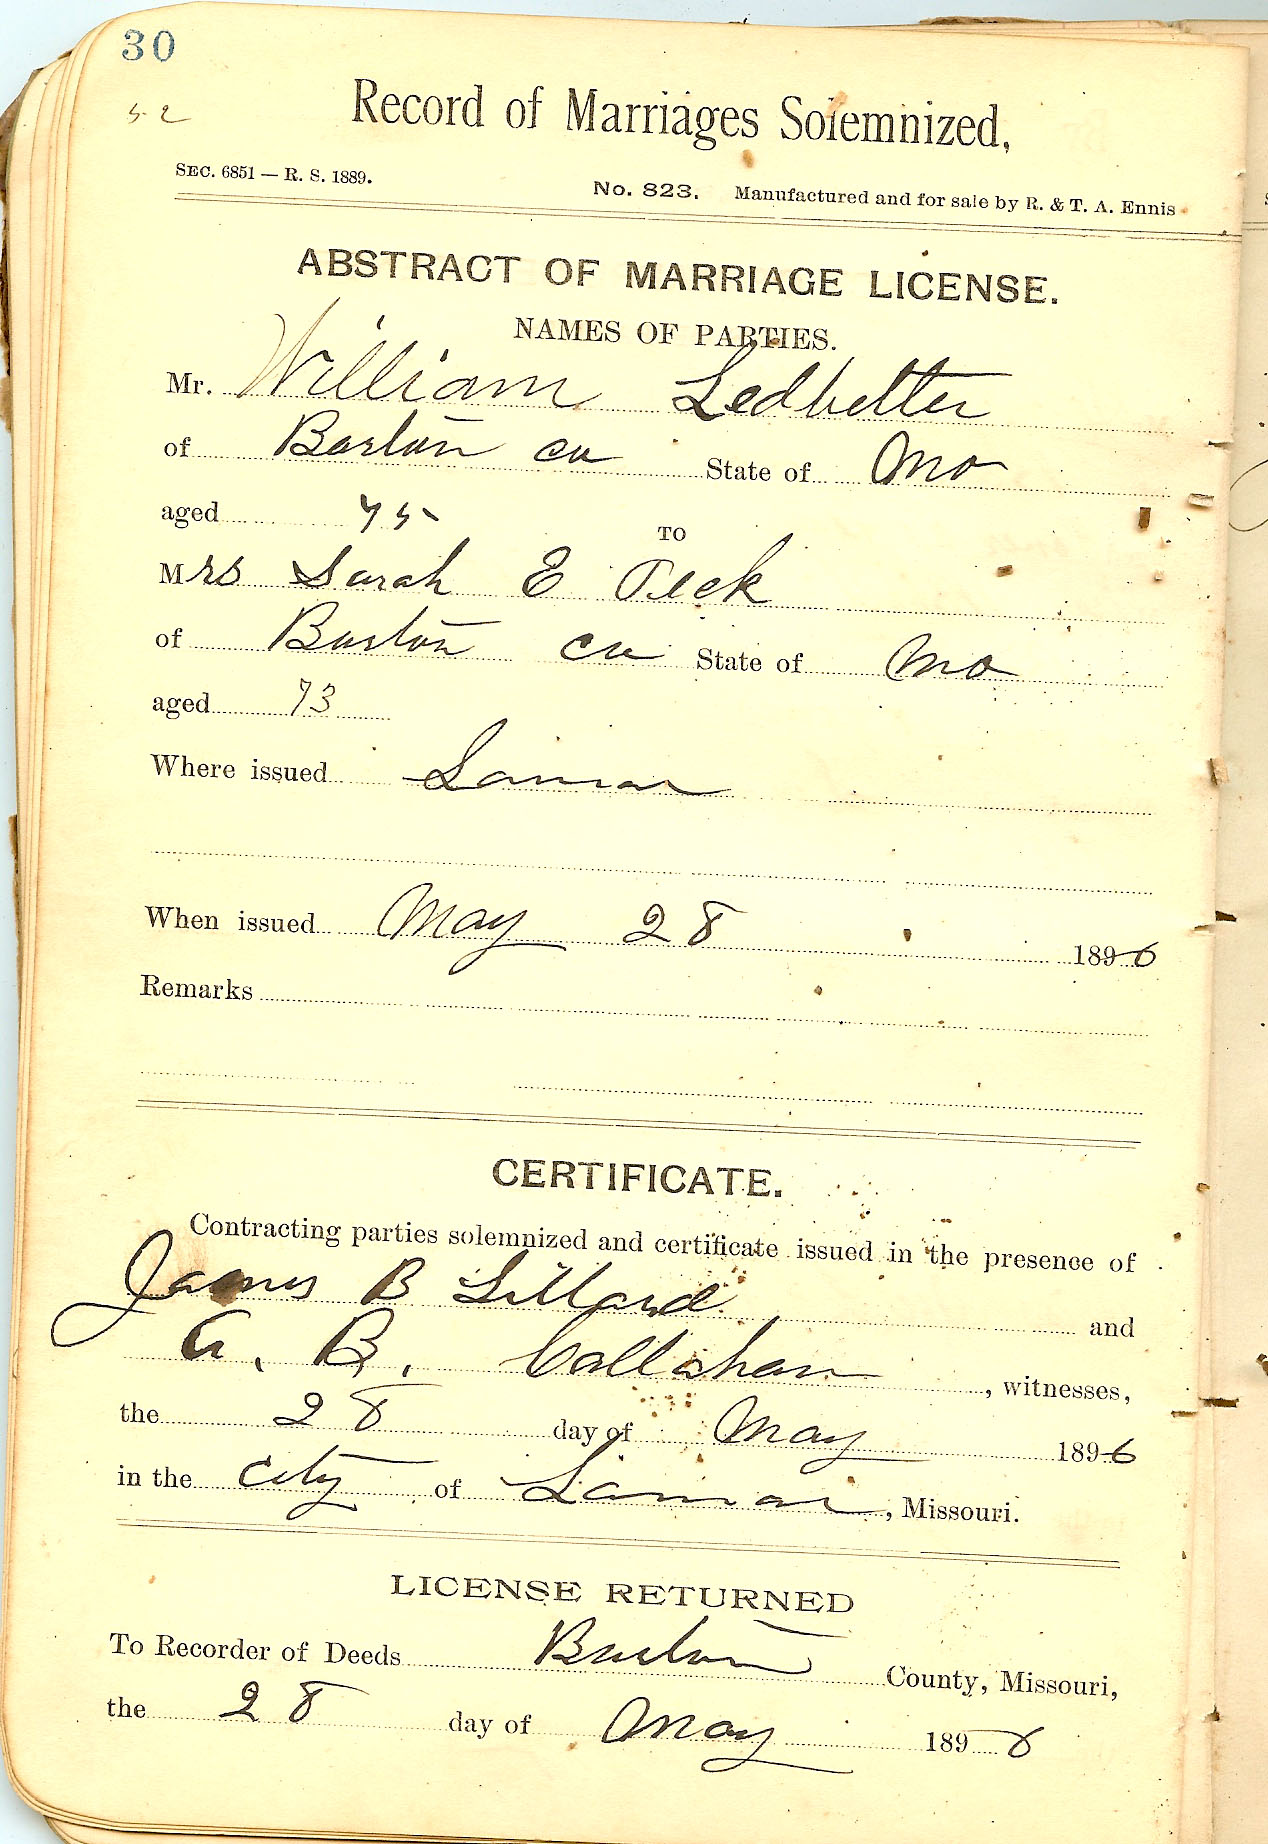 30
52
Record of Marriages Solemnized,
SEC. 6851 — R. S. 1889.
No. 823. Manufactured and for sale by R. & T. A. Ennis
ABSTRACT OF MARRIAGE LICENSE.
NAMES OF PARTIES.
Mr. William Ledbetter
of Barton co State of Mo
aged 75
TO
Mrs Sarah E Peck
of Barton co State of Mo
aged 73
Where issued Lamar
When issued May 28 1896
Remarks
CERTIFICATE.
Contracting parties solemnized and certificate issued in the presence of
James B Lillard and
G. B. Callahan, witnesses,
the 28 day of May 1896
in the city of Lamar, Missouri.
LICENSE RETURNED
To Recorder of Deeds Barton County, Missouri,
the 28 day of May 1896